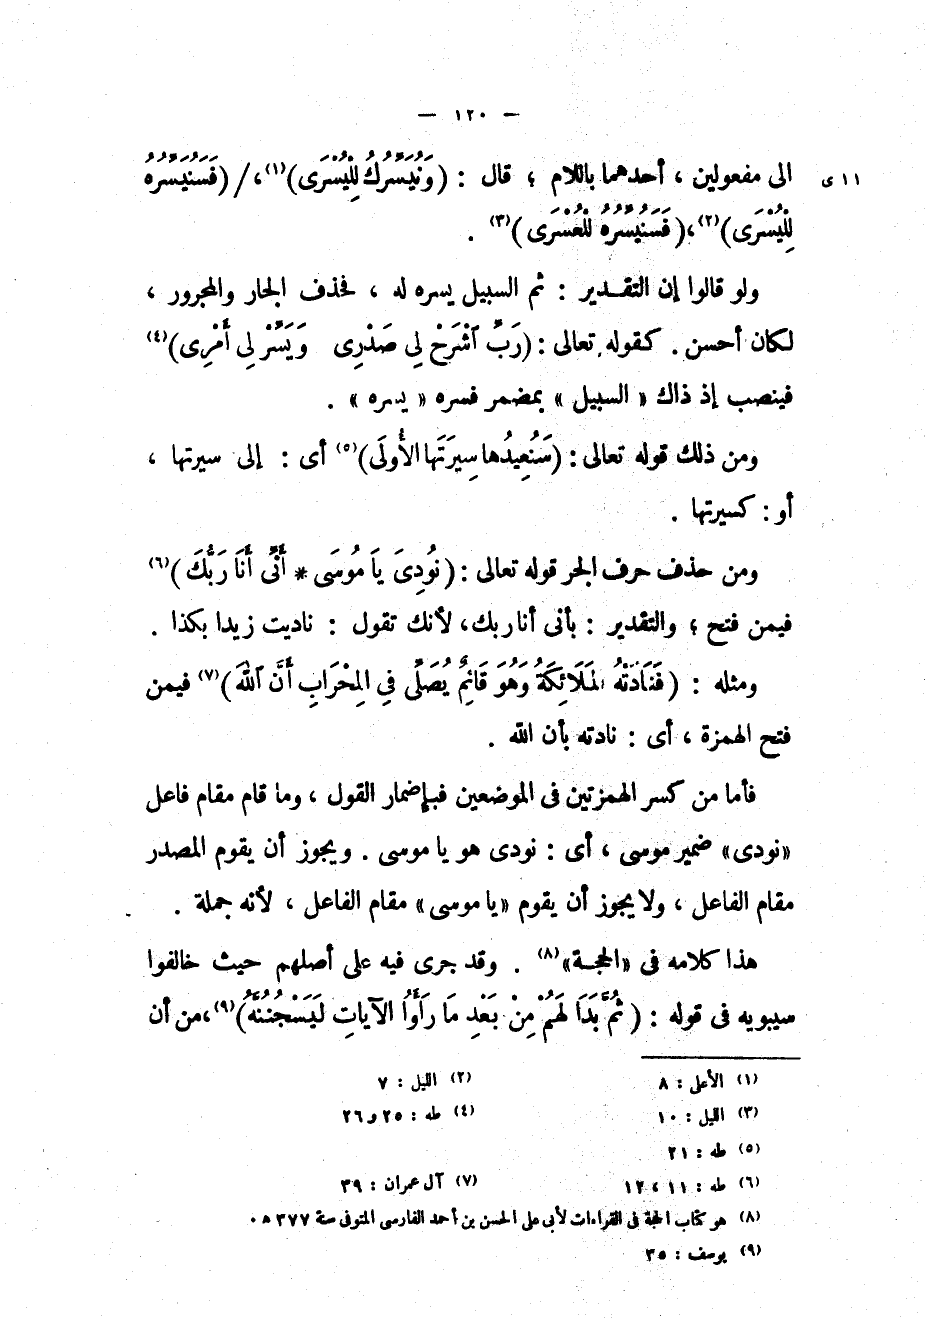 — ١٢٠ —
١١ ى الى مفعولين ، أحدهما باللام ؛ قال : (وَنُيَسِّرُكَ لِلْيُسْرَى)(١)،/ (فَسَنُيَسِّرُهُ
لِلْيُسْرَى)(٢)،(فَسَنُيَسِّرُهُ لِلْعُسْرَى)(٣) .
ولو قالوا إن التقدير : ثم السبيل يسره له ، فحذف الجار والمجرور ،
لكان أحسن . كقوله تعالى : (رَبِّ ٱشْرَحْ لِى صَدْرِى وَيَسِّرْ لِى أَمْرِى)(٤)
فينصب إذ ذاك « السبيل » بمضمر فسره « يسره » .
ومن ذلك قوله تعالى : (سَنُعِيدُها سِيرَتَها الأُولَى)(٥) أى : إلى سيرتها ،
أو : كسيرتها .
ومن حذف حرف الجر قوله تعالى : (نُودِىَ يَا مُوسَى * أَنِّى أَنَا رَبُّكَ)(٦)
فيمن فتح ؛ والتقدير : بأنى أنا ربك، لأنك تقول : ناديت زيدا بكذا .
ومثله : (فَنَادَتْهُ المَلَائِكَةُ وَهُوَ قَائِمٌ يُصَلِّى فِي المِحْرَابِ أَنَّ ٱللهَ)(٧) فيمن
فتح الهمزة ، أى : نادته بأن الله .
فأما من كسر الهمزتين فى الموضعين فبإضمار القول ، وما قام مقام فاعل
«نودى» ضمير موسى ، أى : نودى هو يا موسى . ويجوز أن يقوم المصدر
مقام الفاعل ، ولا يجوز أن يقوم «يا موسى» مقام الفاعل ، لأنه جملة .
هذا كلامه فى «الحجة»(٨) . وقد جرى فيه على أصلهم حيث خالفوا
سيبويه فى قوله : (ثُمَّ بَدَا لَهُمْ مِنْ بَعْدِ مَا رَأَوُا الآيَاتِ لَيَسْجُنُنَّهُ)(٩)،من أن
(١) الأعلى : ٨ (٢) الليل : ٧
(٣) الليل : ١٠ (٤) طه : ٢٥ و ٢٦
(٥) طه : ٢١
(٦) طه : ١١ ، ١٢ (٧) آل عمران : ٣٩
(٨) هو كتاب الحجة فى القراءات لأبى على الحسن بن أحمد الفارسى المتوفى سنة ٣٧٧ ه .
(٩) يوسف : ٣٥